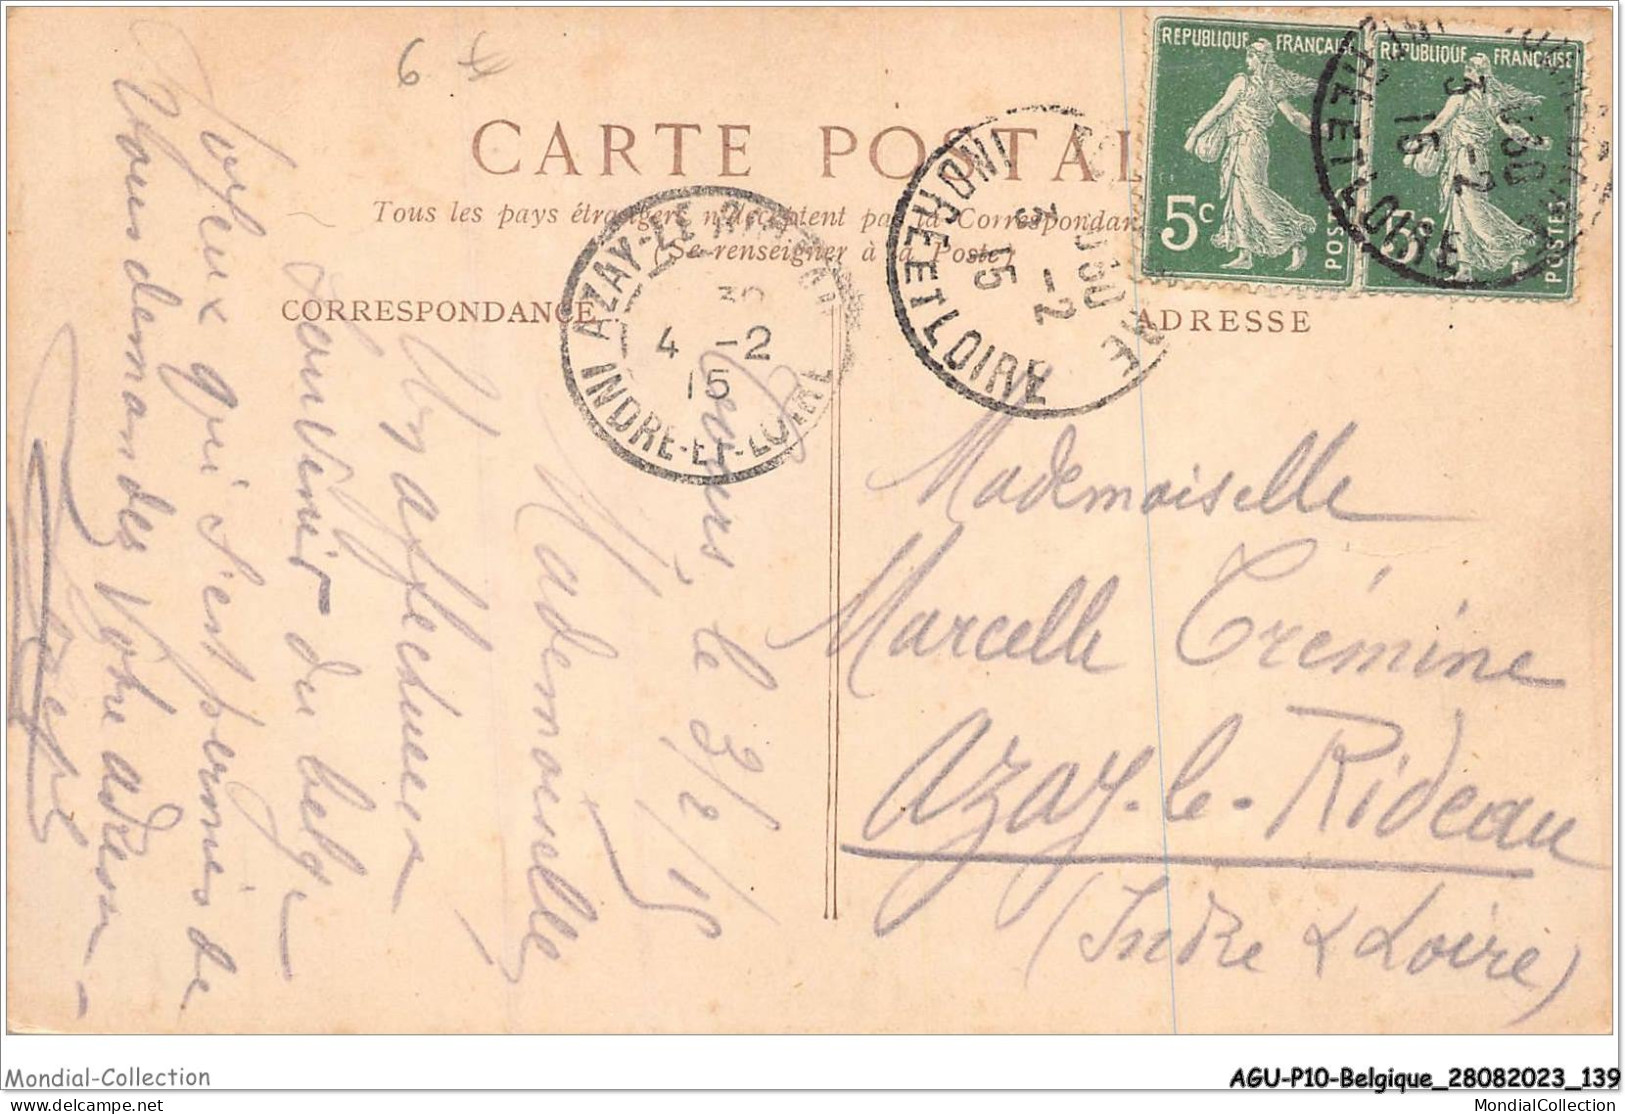 CARTE POSTALE
Tous les pays étrangers n'acceptent pas la Correspondance
(Se renseigner à la Poste)
CORRESPONDANCE
ADRESSE
REPUBLIQUE FRANÇAISE
5c
POSTES
REPUBLIQUE FRANÇAISE
5c
POSTES
AZAY-LE-RIDEAU
30
4 -2
15
INDRE-ET-LOIRE
3 -2
15
INDRE ET LOIRE
3 -2
15
INDRE ET LOIRE
6
Tours, le 3/2/15
Mademoiselle
Un affectueux
souvenir du belge
qui s'est permis de
Vous demander Votre adresse
Joseph
Mademoiselle
Marcelle Crémine
Azay-le-Rideau
(Indre & Loire)
Mondial-Collection
AGU-P10-Belgique_28082023_139
delcampe.net
MondialCollection